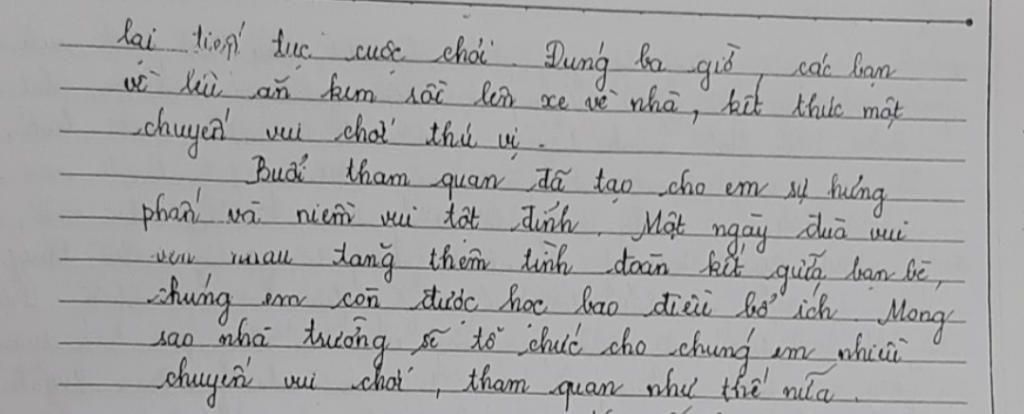 lại tiếp tục cuộc chơi. Đúng ba giờ, các bạn
về lều ăn kem rồi lên xe về nhà, kết thúc một
chuyến vui chơi thú vị.
Buổi tham quan đã tạo cho em sự hưng
phấn và niềm vui tột đỉnh. Một ngày đùa vui
bên nhau tăng thêm tình đoàn kết giữa bạn bè,
chúng em còn được học bao điều bổ ích. Mong
sao nhà trường sẽ tổ chức cho chúng em nhiều
chuyến vui chơi, tham quan như thế nữa.